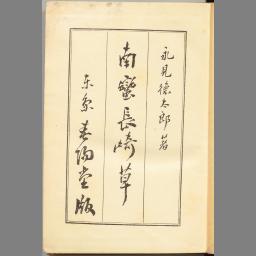 永見徳太郎著
南蠻長崎草
東京春陽堂版